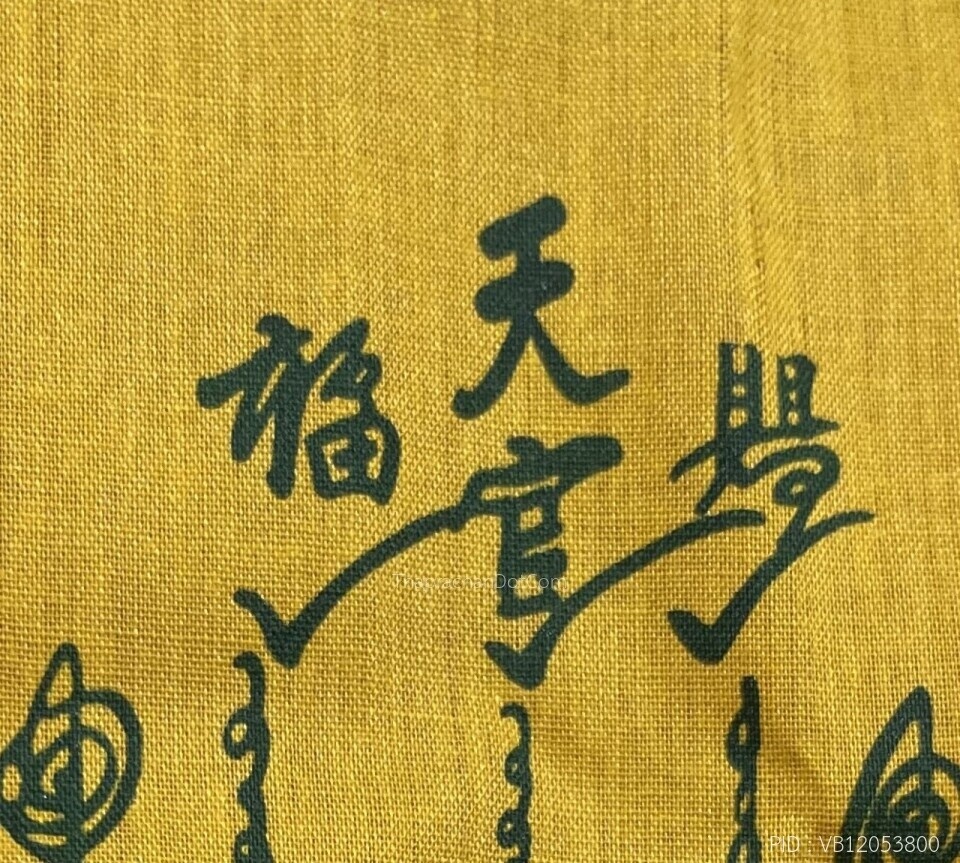 天官
賜
福
ThaprachanDotCom
PID : VB12053800